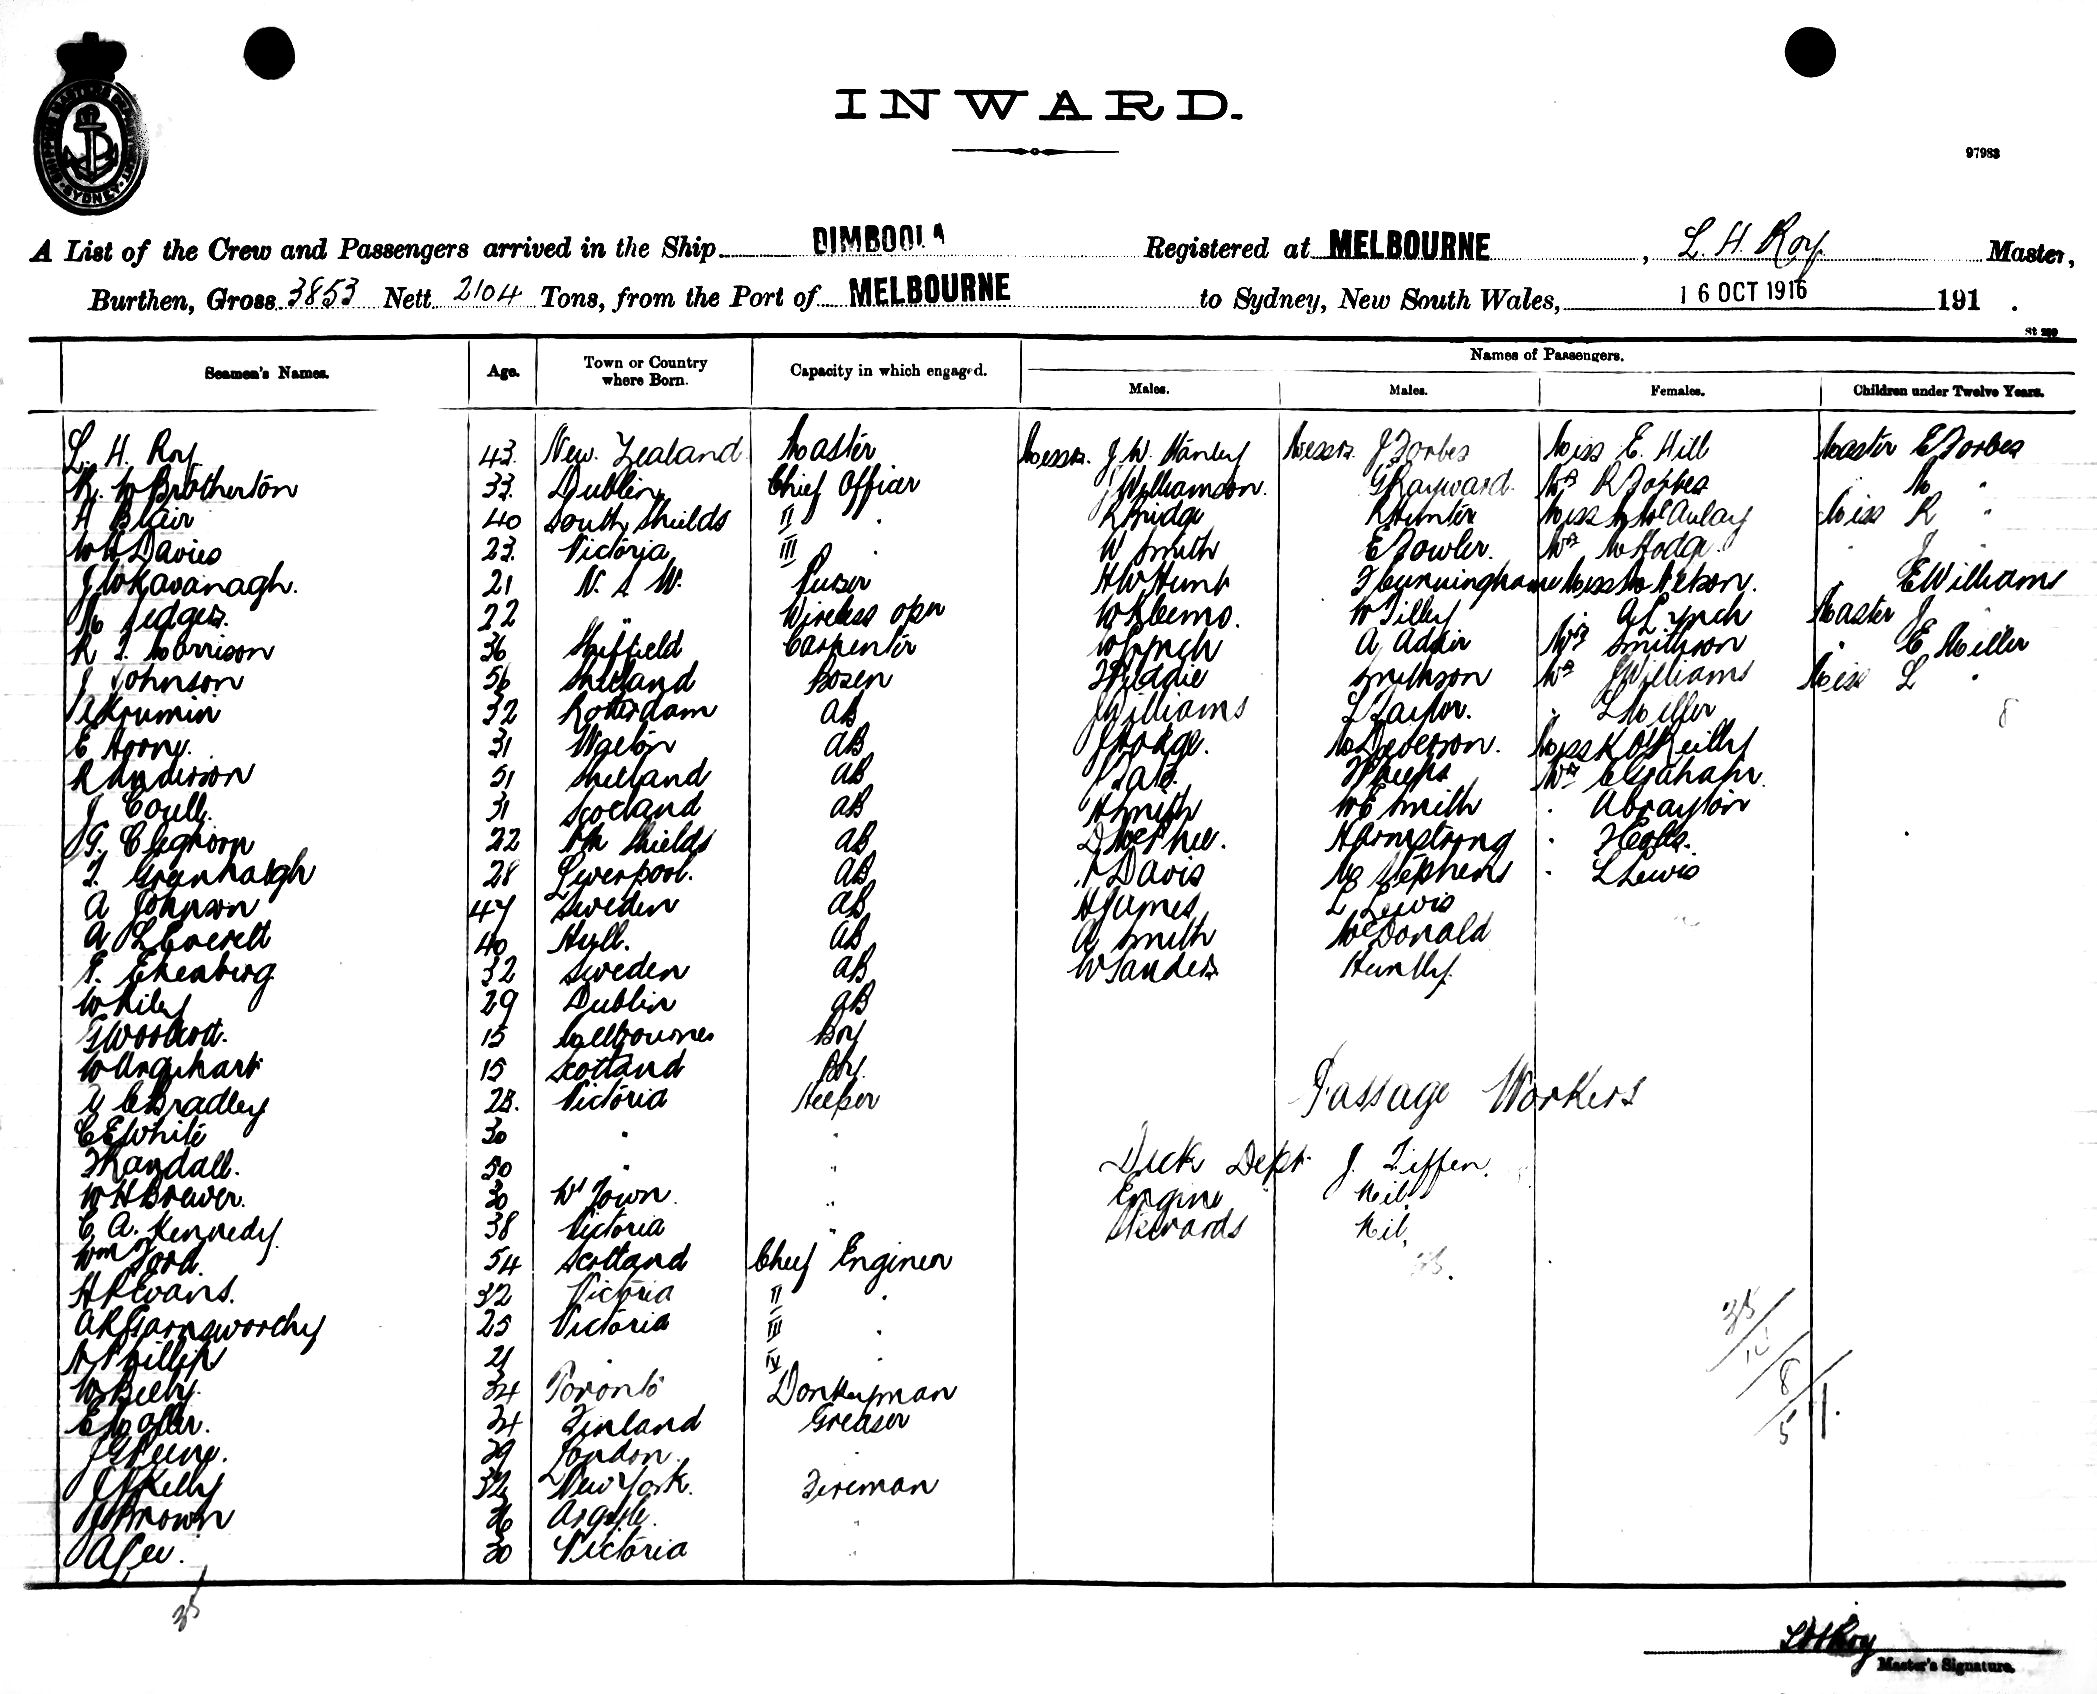 INWARD.
97983
A List of the Crew and Passengers arrived in the Ship DIMBOOLA Registered at MELBOURNE, L. H. Roy Master,
Burthen, Gross 3853 Nett 2104 Tons, from the Port of MELBOURNE to Sydney, New South Wales, 16 OCT 1916 191 .
St 299
Seamen's Names. Age. Town or Country where Born. Capacity in which engaged. Names of Passengers.
Males. Males. Females. Children under Twelve Years.
L. H. Roy 43 New Zealand Master Messrs. J W Hanley Messrs. J Forbes Miss E. Hill Master E Forbes
Brotherton 33. Dublin Chief Officer J Williamson. G Rayward Mrs R Forbes M "
A Blair 40 South Shields II " R Bridge R Hunter Miss McAulay Miss R "
W H Davies 23. Victoria III " W Smith E Fowler. Mrs W Hodge J "
J W Kavanagh. 21 N. S. W. Purser H W Hunt F Cunninghame Miss M Nelson. " E Williams
22 " Wireless oper W Kleems. W Tilley " A Lynch Master J "
R T Morrison 36 Sheffield Carpenter W Lynch A Adair Mrs Smithson " E Miller
J Johnson 56 Shetland Bosen Smithson Mrs J Williams Miss L "
32 Rotterdam AB J Williams L Taylor. " L Miller 8
E 31 AB J Hodge. Miss K O'Reilly
R Anderson 51 Shetland AB Mrs C Graham.
J Coull. 31 Scotland AB H Smith W E Smith " A Brayton
G. Cleghorn 22 Nth Shields AB H Armstrong "
T. Greenhalgh 28 Liverpool. AB Davis Stephens " L Lewis
A Johnson 47 Sweden AB H James L Lewis
A L Everett 40 Hull. AB A Smith McDonald
Ekenberg 32 Sweden AB W Sanders Huntly.
W Riley 29 Dublin AB
15 Melbourne Boy
W Urquhart 15 Scotland Boy.
C Bradley 28. Victoria Keeper Passage Workers
C E White 30 " "
F Randall. 50 " " Deck Dept. J. Tiffen.
W H Brewer. 30 W Town. " Engine Nil
C A. Kennedy. 38 Victoria " Stewards Nil.
Wm Ford. 54 Scotland Chief Engineer
H P Evans. 32 Victoria II "
A R Garnsworthy 25 Victoria III "
Phillip 21 " IV "
W Beeby. 34 Toronto Donkeyman
34 Finland Greaser
29 London. "
J Kelly 32 New York. Fireman
J Brown 36 Argyle. "
A Lee. 30 Victoria "
L H Roy
Master's Signature.